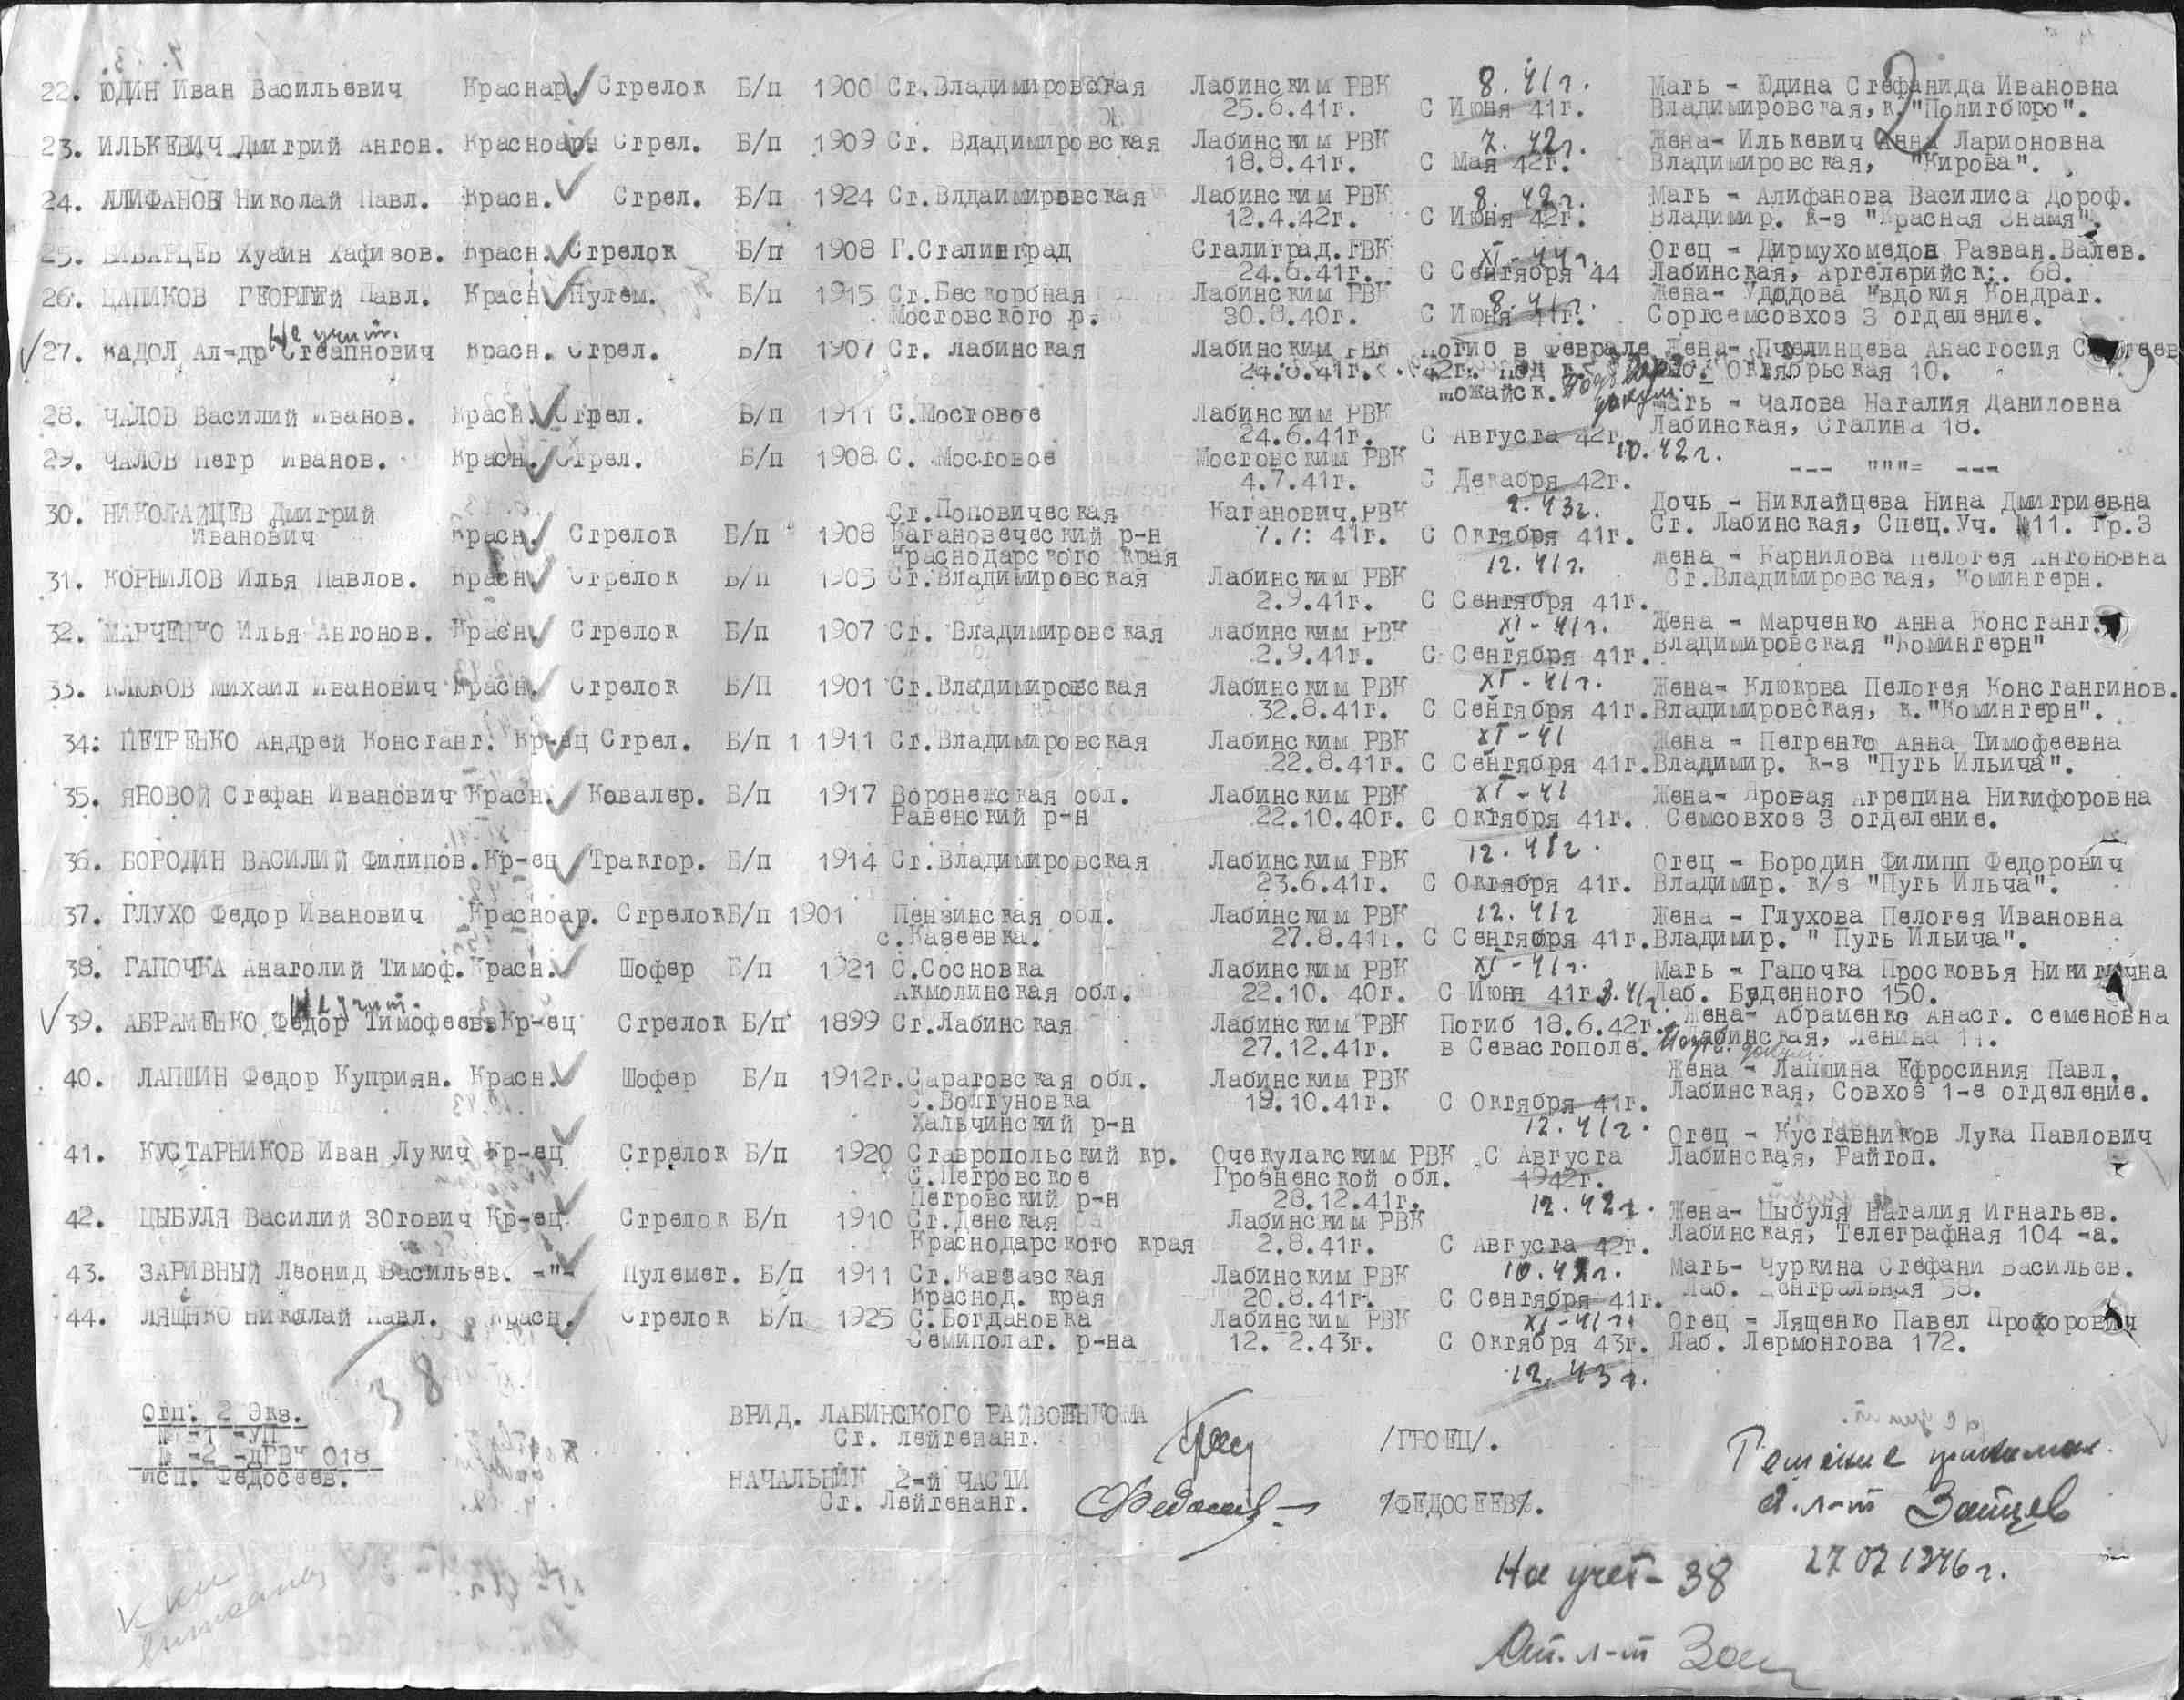 22. ЮДИН Иван Васильевич Краснар. Стрелок Б/п 1900 Ст.Владимировская Лабинским РВК 8.41г. Мать - Юдина Стефанида Ивановна
25.6.41г. С Июня 41г. Владимировская, к. "Политбюро".
2
23. ИЛЬКЕВИЧ Дмитрий Антон. Красноарм Стрел. Б/п 1909 Ст. Владимировская Лабинским РВК 7.42г. Жена- Илькевич Анна Ларионовна
18.8.41г. С Мая 42г. Владимировская, "Кирова".
24. АЛИФАНОВ Николай Павл. Красн. Стрел. Б/п 1924 Ст.Влдаимировская Лабинским РВК 8.42г. Мать - Алифанова Василиса Дороф.
12.4.42г. С Июня 42г. Владимир. к-з "Красная Знамя".
25. Хуаин Хафизов. Красн. Стрелок Б/п 1908 Г.Сталинград Сталиград.ГВК XI-44г. Отец - Дирмухомедов Разван.Валев.
24.6.41г. С Сентября 44 Лабинская, Артелерийск:. 68.
26. ЦАПИКОВ ГЕОРГИЙ Павл. Красн. Пулем. Б/п 1915 Ст.Бескорбная Лабинским РВК 8.41г. Жена- Удодова Евдокия Кондрат.
Мостовского р. 30.8.40г. С Июня 41г. Сортсемсовхоз 3 отделение.
Не учит.
27. КАДОЛ Ал-др Стеапнович Красн. Стрел. Б/п 1907 Ст. Лабинская Лабинским РВК Погиб в Феврале Жена- Пчелинцева Анастосия
24.6.41г. 42г. под г. Октябрьская 10.
Можайск.
28. ЧАЛОВ Василий Иванов. Красн. Стрел. Б/п 1911 С.Мостовое Лабинским РВК Мать - Чалова Наталия Даниловна
24.6.41г. С Августа 42г. Лабинская, Сталина 18.
10.42г.
29. ЧАЛОВ Петр Иванов. Красн. Стрел. Б/п 1908 С. Мостовое Мостовским РВК --- """= ---
4.7.41г. С Декабря 42г.
2.43г.
30. НИКОЛАЙЦЕВ Дмитрий Ст.Поповическая Каганович.РВК Дочь - Никлайцева Нина Дмитриевна
Иванович Красн. Стрелок Б/п 1908 Кагановеческий р-н 7.7: 41г. С Октября 41г. Ст. Лабинская, Спец.Уч. №11. Гр.3
Краснодарского края 12.41г.
31. КОРНИЛОВ Илья Павлов. Красн. Стрелок Б/п 1905 Ст.Владимировская Лабинским РВК Жена - Карнилова Пелогея Антоновна
2.9.41г. С Сентября 41г. Ст.Владимировская, Коминтерн.
XI-41г.
32. МАРЧЕНКО Илья Антонов. Красн. Стрелок Б/п 1907 Ст. Владимировская Лабинским РВК Жена - Марченко Анна Констант.
2.9.41г. С Сентября 41г. Владимировская "Коминтерн"
XI-41г.
33. КЛЮКОВ Михаил Иванович Красн. Стрелок Б/П 1901 Ст.Владимировская Лабинским РВК Жена- Клюкрва Пелогея Константинов.
32.8.41г. С Сентября 41г. Владимировская, к."Коминтерн".
XI-41
34: ПЕТРЕНКО Андрей Констант. Кр-ец Стрел. Б/п 1 1911 Ст.Владимировская Лабинским РВК Жена - Петренко Анна Тимофеевна
22.8.41г. С Сентября 41г. Владимир. к-з "Путь Ильича".
XI-41
35. ЯНОВОЙ Стефан Иванович Красн. Ковалер. Б/п 1917 Воронежская обл. Лабинским РВК Жена- Яровая Агрепина Никифоровна
Равенский р-н 22.10.40г. С Октября 41г. Семсовхоз 3 отделение.
12.41г.
36. БОРОДИН ВАСИЛИЙ Филипов. Кр-ец Трактор. Б/п 1914 Ст.Владимировская Лабинским РВК Отец - Бородин Филипп Федорович
23.6.41г. С Октября 41г. Владимир. к/з "Путь Ильча".
12.41г
37. ГЛУХО Федор Иванович Красноар. Стрелок Б/п 1901 Пензинская обл. Лабинским РВК Жена - Глухова Пелогея Ивановна
с.Казеевка. 27.8.41г. С Сентября 41г. Владимир. " Путь Ильича".
XI-41г.
38. ГАПОЧКА Анатолий Тимоф. Красн. Шофер Б/п 1921 С.Сосновка Лабинским РВК Мать - Гапочка Просковья Никитична
Акмолинская обл. 22.10. 40г. С Июня 41г. 8.41г. Лаб. Буденного 150.
Не учит.
39. АБРАМЕНКО Федор Тимофеев. Кр-ец Стрелок Б/п 1899 Ст.Лабинская Лабинским РВК Погиб 18.6.42г. Жена- Абраменко Анаст. семеновна
27.12.41г. в Севастополе. Лабинская, Ленина 11.
40. ЛАПШИН Федор Куприян. Красн. Шофер Б/п 1912г. Саратовская обл. Лабинским РВК Жена - Лапшина Ефросиния Павл.
С.Волгуновка 19.10.41г. С Октября 41г. Лабинская, Совхоз 1-е отделение.
Хальчинский р-н 12.41г.
41. КУСТАРНИКОВ Иван Лукич Кр-ец Стрелок Б/п 1920 Ставропольский кр. Очекулакским РВК С Августа Отец - Куставников Лука Павлович
С.Петровское Грозненской обл. 1942г. Лабинская, Райтоп.
Петровский р-н 28.12.41г. 12.42г.
42. ЦЫБУЛЯ Василий ЗОтович Кр-ец Стрелок Б/п 1910 Ст.Денская Лабинским РВК Жена- Цыбуля Наталия Игнатьев.
Краснодарского края 2.8.41г. С Августа 42г. Лабинская, Телеграфная 104 -а.
10.42г.
43. ЗАРИВНЫЙ Леонид Васильев. -"- Пулемет. Б/п 1911 Ст.Кавзазская Лабинским РВК Мать- Чуркина Стефани Васильев.
Краснод. края 20.8.41г. С Сентября 41г. Лаб. Центральная 58.
XI-41г.
44. ЛЯЩНКО Николай Павл. Красн. Стрелок Б/п 1925 С.Богдановка Лабинским РВК Отец - Лященко Павел Профорович
Семиполат. р-на 12. 2.43г. С Октября 43г. Лаб. Лермонтова 172.
12.43г.
38
Отп: 2 Экз.
№ -1 -УП
№ -2 -ДРВК 018
исп. Федосеев.
ВРИД. ЛАБИНСКОГО РАЙВОЕНКОМА
Ст. лейтенант. /ГРОЕЦ/.
НАЧАЛЬНИК 2-й ЧАСТИ
Ст. Лейтенант. /ФЕДОСЕЕВ/.
Решение принимал
Ст. л-т Зайцев
27 02 1946г.
На учет - 38
Ст. л-т